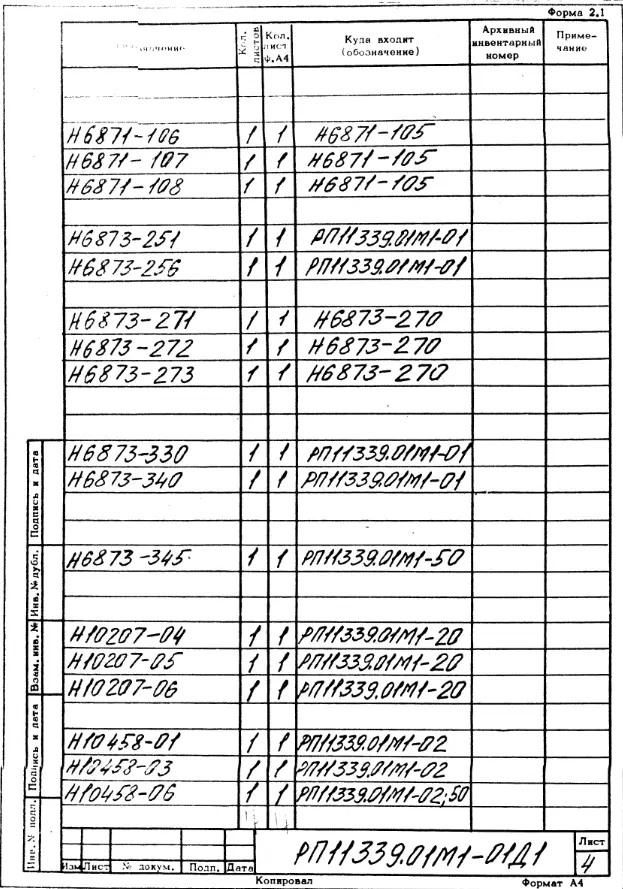 Форма 2.1
Кол. листов
Кол. лист ф.А4
Куда входит (обозначение)
Архивный инвентарный номер
Приме-чание
Н6871-106 1 1 Н6871-105
Н6871-107 1 1 Н6871-105
Н6871-108 1 1 Н6871-105
Н6873-251 1 1 РП11339.01М1-01
Н6873-256 1 1 РП11339.01М1-01
Н6873-271 1 1 Н6873-270
Н6873-272 1 1 Н6873-270
Н6873-273 1 1 Н6873-270
Н6873-330 1 1 РП11339.01М1-01
Н6873-340 1 1 РП11339.01М1-01
Н6873-345 1 1 РП11339.01М1-50
Н10207-04 1 1 РП11339.01М1-20
Н10207-05 1 1 РП11339.01М1-20
Н10207-06 1 1 РП11339.01М1-20
Н10458-01 1 1 РП11339.01М1-02
Н10458-03 1 1 РП11339.01М1-02
Н10458-06 1 1 РП11339.01М1-02;50
Подпись и дата
Инв. № дубл.
Взам. инв. №
Подпись и дата
Инв. № подл.
Изм Лист № докум. Подп. Дата
РП11339.01М1-01Д1
Лист
4
Копировал
Формат А4